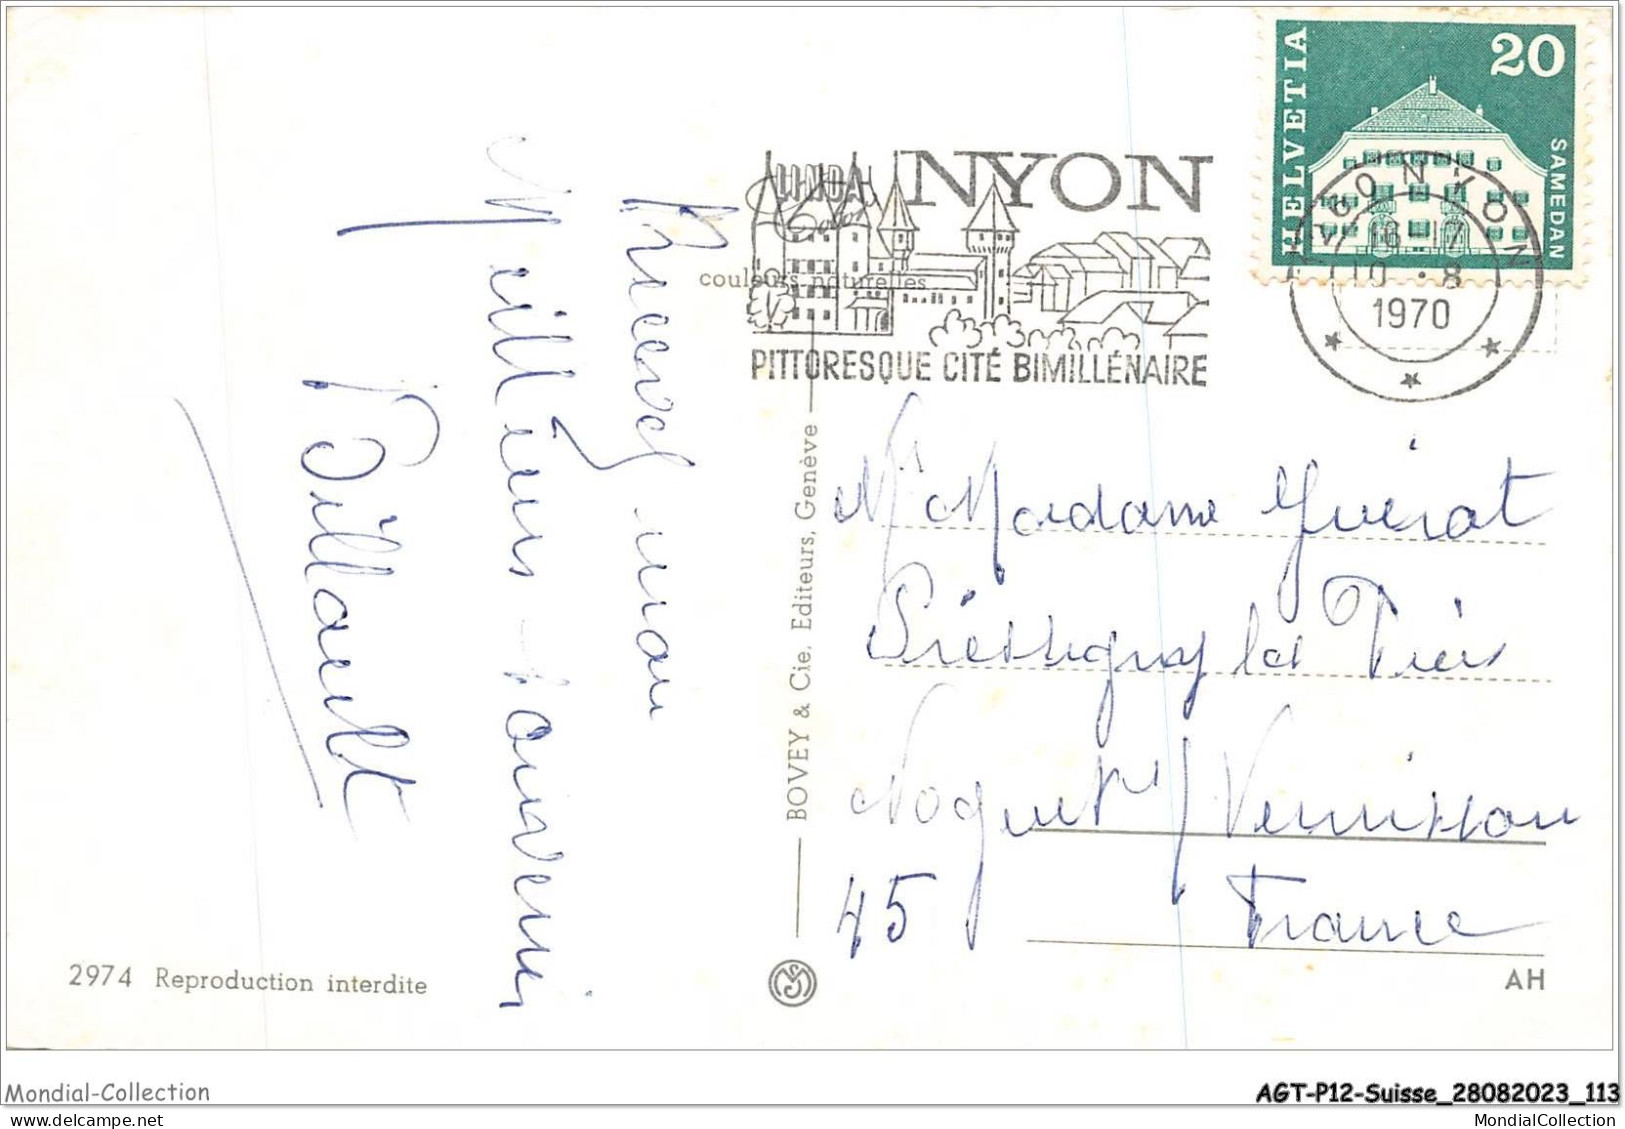 HELVETIA
20
SAMEDAN
1260 NYON
16-17
10.-8
1970
NYON
PITTORESQUE CITÉ BIMILLÉNAIRE
LINDA
Color
couleurs naturelles
Recevez mon
Meilleurs souvenir
Billault
BOVEY & Cie. Editeurs, Genève
Mr Madame Guérot
Préssigny les Pins
Noguet s/ Vernisson
45 France
2974 Reproduction interdite
AH
Mondial-Collection
AGT-P12-Suisse_28082023_113
MondialCollection